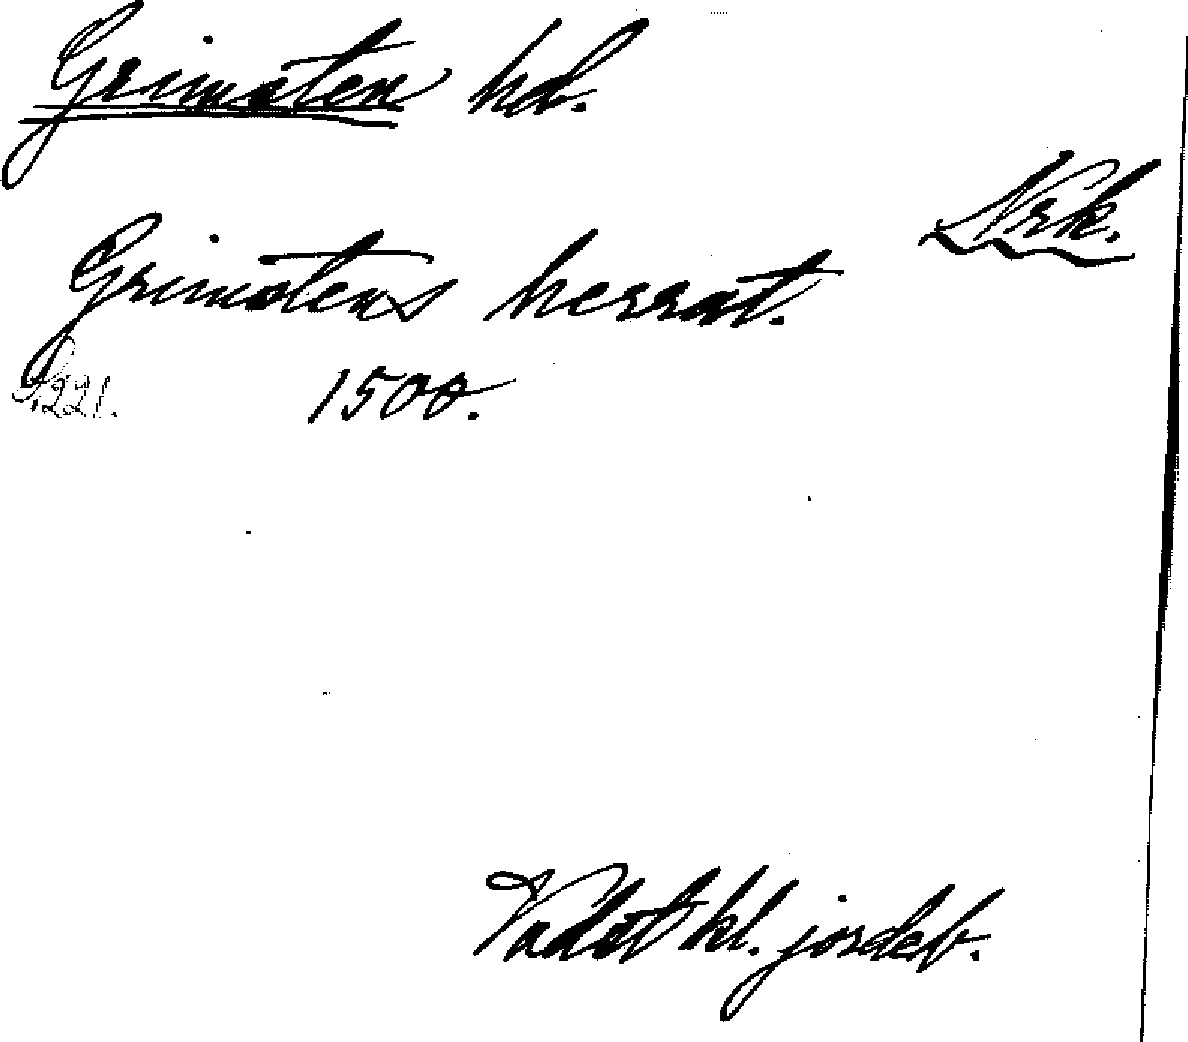 Grimsten hd.
Nrk.
Grimstens herrat.
S. 221. 1500.
Vadst kl. jordeb.